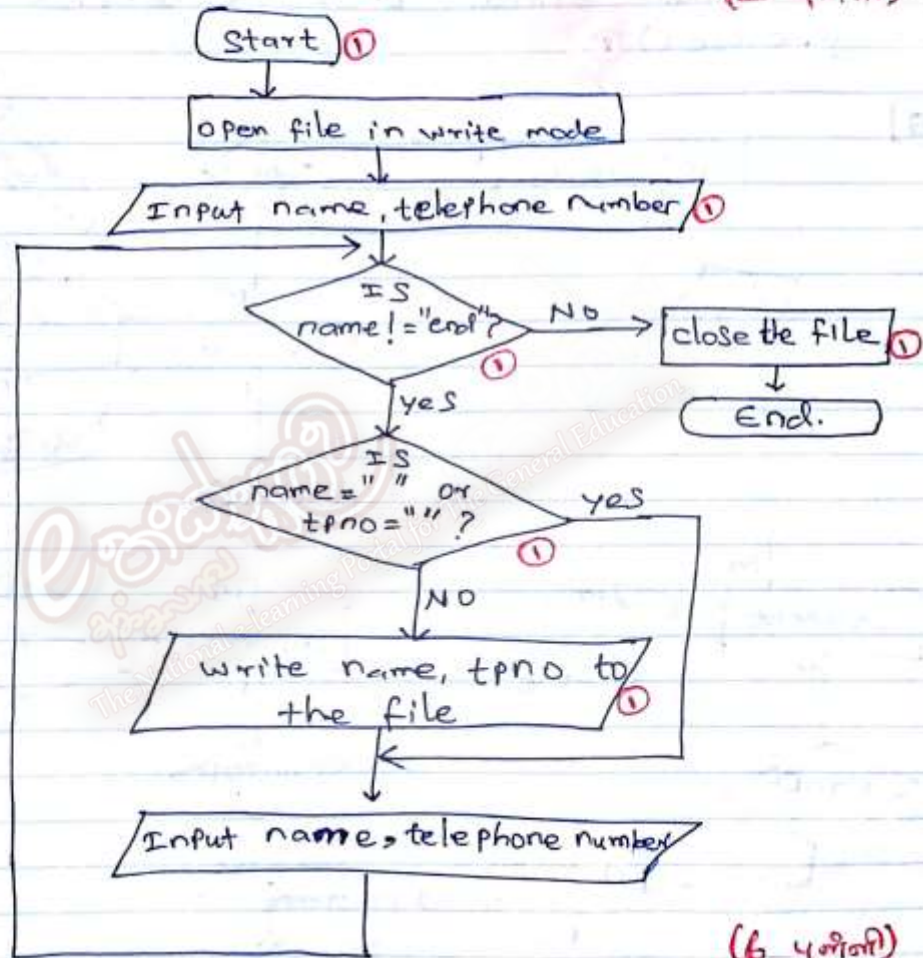 Start ①
open file in write mode
Input name, telephone number ①
IS
name!="end"?
No
①
close the file ①
End.
yes
IS
name=" " or
tpno=" " ?
yes
①
NO
write name, tpno to
the file ①
Input name, telephone number
(6 புள்ளி)
The National e-learning Portal for the General Education